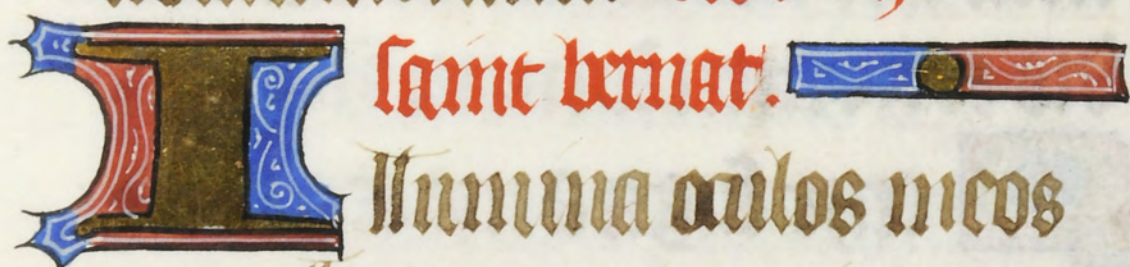 saint bernat.
Illumina oculos meos